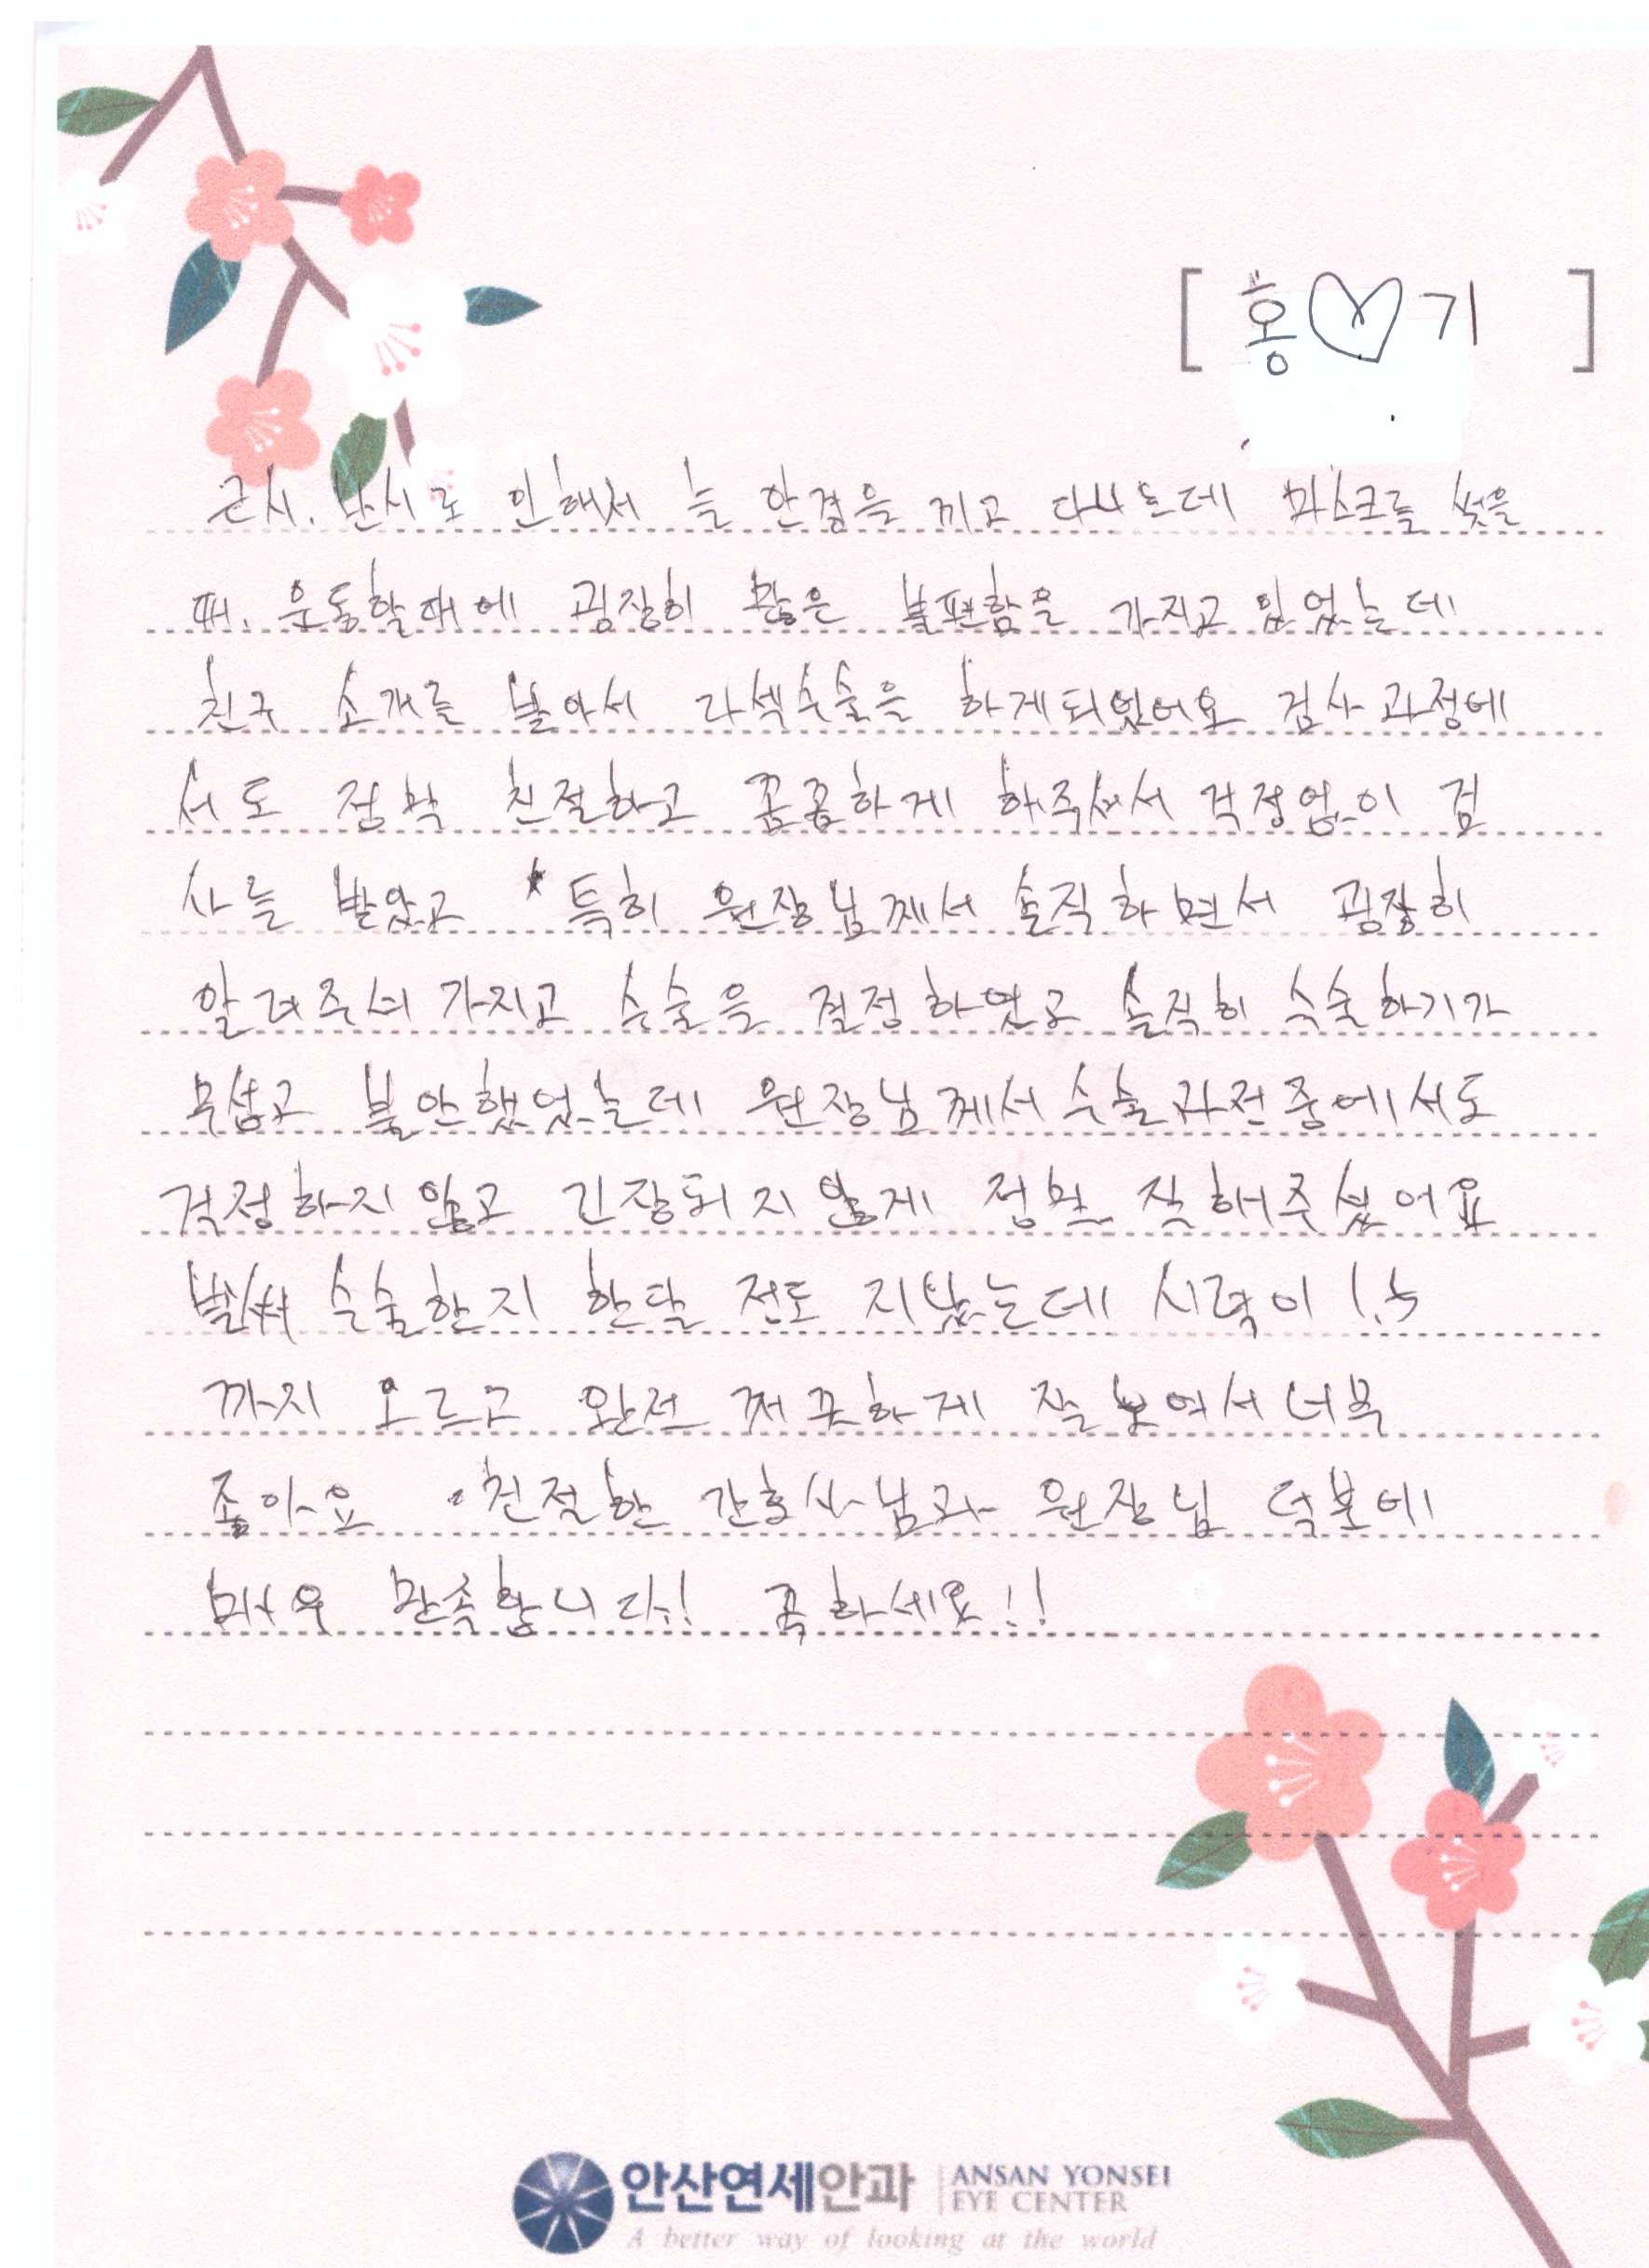 [ 홍♡기 ]
근시, 난시로 인해서 늘 안경을 끼고 다니는데 마스크를 썻을
때, 운동할때에 굉장히 많은 불편함을 가지고 있었는데
친구 소개를 받아서 라섹수술을 하게되었어요 검사과정에
서도 정말 친절하고 꼼꼼하게 해주셔서 걱정없이 검
사를 받았고 *특히 원장님께서 솔직하면서 굉장히
알려주셔 가지고 수술을 결정하였고 솔직히 수술하기가
무섭고 불안했었는데 원장님께서 수술과전중에서도
걱정하지 않고 긴장되지 않게 정말 잘해주셨어요
벌써 수술한지 한달 전도 지났는데 시력이 1.5
까지 오르고 완전 깨끗하게 잘 보여서 너무
좋아요 친절한 간호사님과 원장님 덕분에
매우 만족합니다! 꼭하세요!!
안산연세안과 ANSAN YONSEI
EYE CENTER
A better way of looking at the world